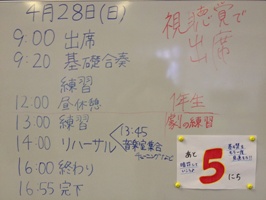 4月28日(日)
9:00 出席
9:20 基礎合奏
練習
12:00 昼休憩
13:00 練習
14:00 リハーサル
13:45
音楽室集合
16:00 終わり
16:55 完下
視聴覚で
出席
1年生
の練習
あと
5
にち